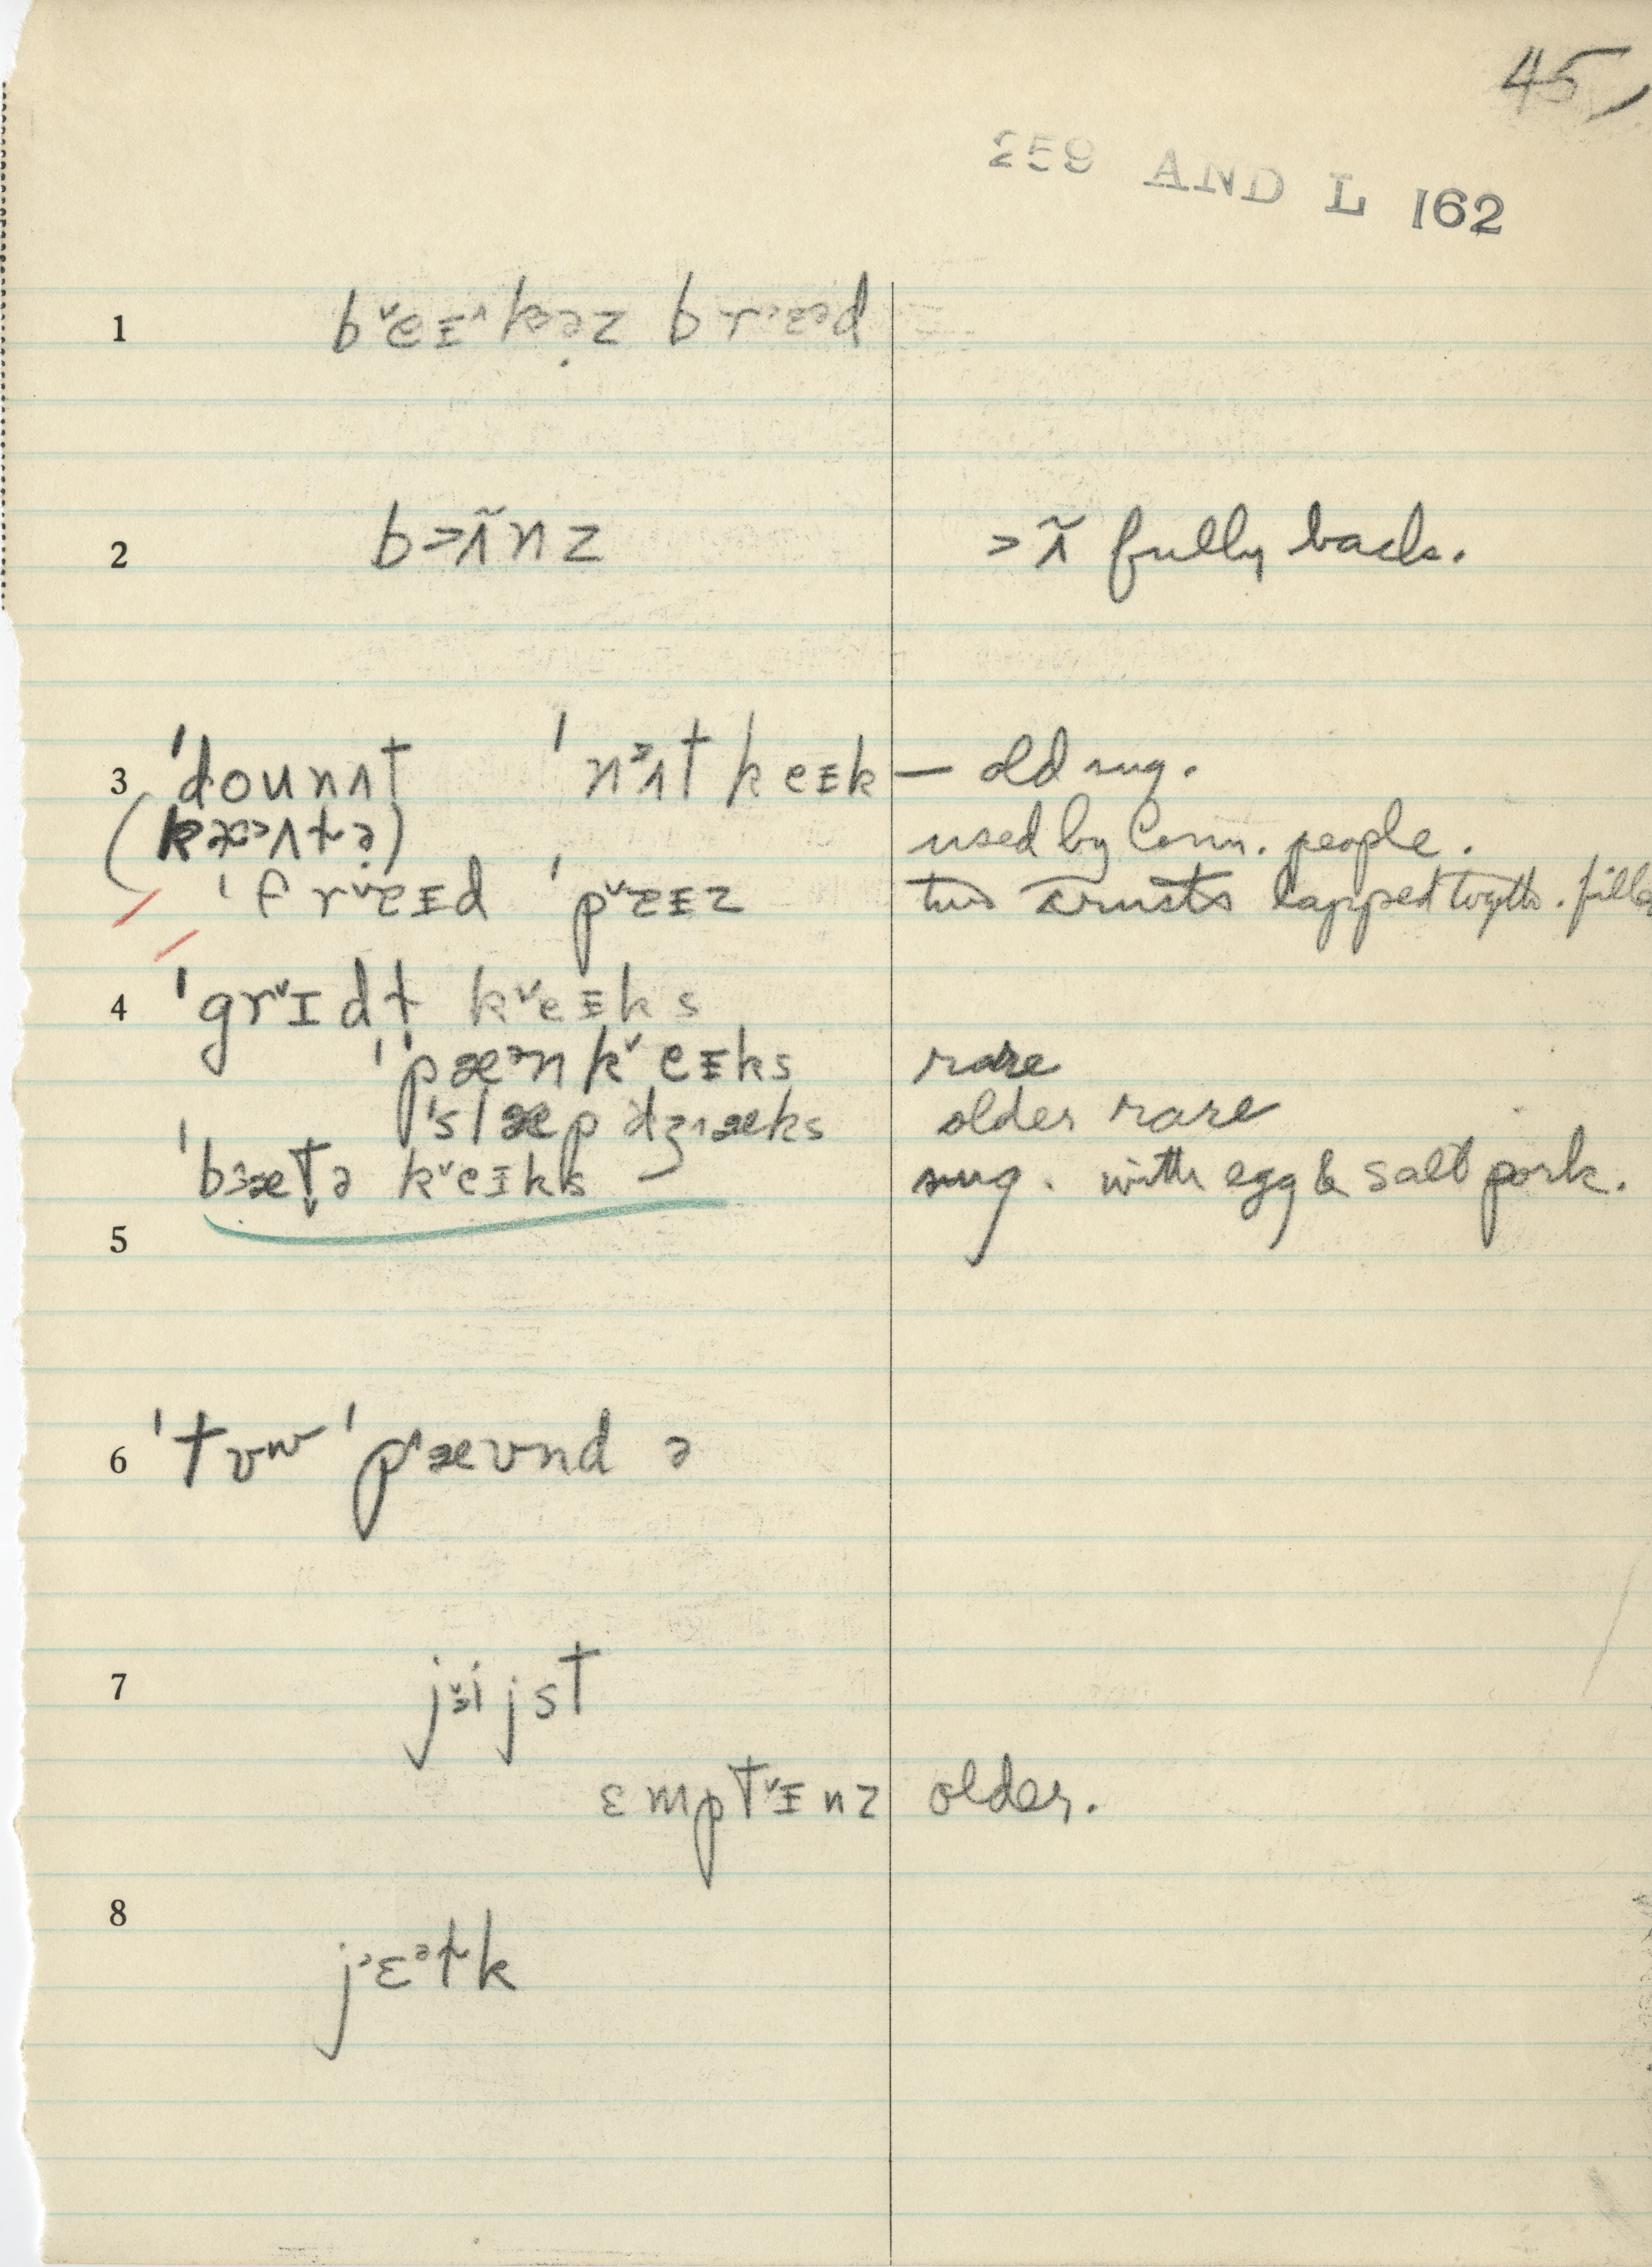 45,
259 AND L 162
1 b˅eɪ˄kəz brɛ·əd
2 b>ɪ̃nz >ɪ̃ fully back.
3 ˈdounʌt ˈnɜʌt keɪk — old sug.
(kɒ>ʌtə) used by Conn. people.
ˈfr˅ɛɪd ˈp˅ɛɪz two crusts lapped togeth. fille
4 ˈgr˅ɪdɫ k˅eɪks
ˈpæ˃nk˅eɪks rare
ˈslæpdʒæks older rare
ˈbɜætə k˅eɪks sug. with egg & salt pork.
5
6 ˈtʊw ˈpæʊnd ə
7 j˅ɨjst
ɛmpt˅ɪnz older.
8 j˃ɛᵊɫk